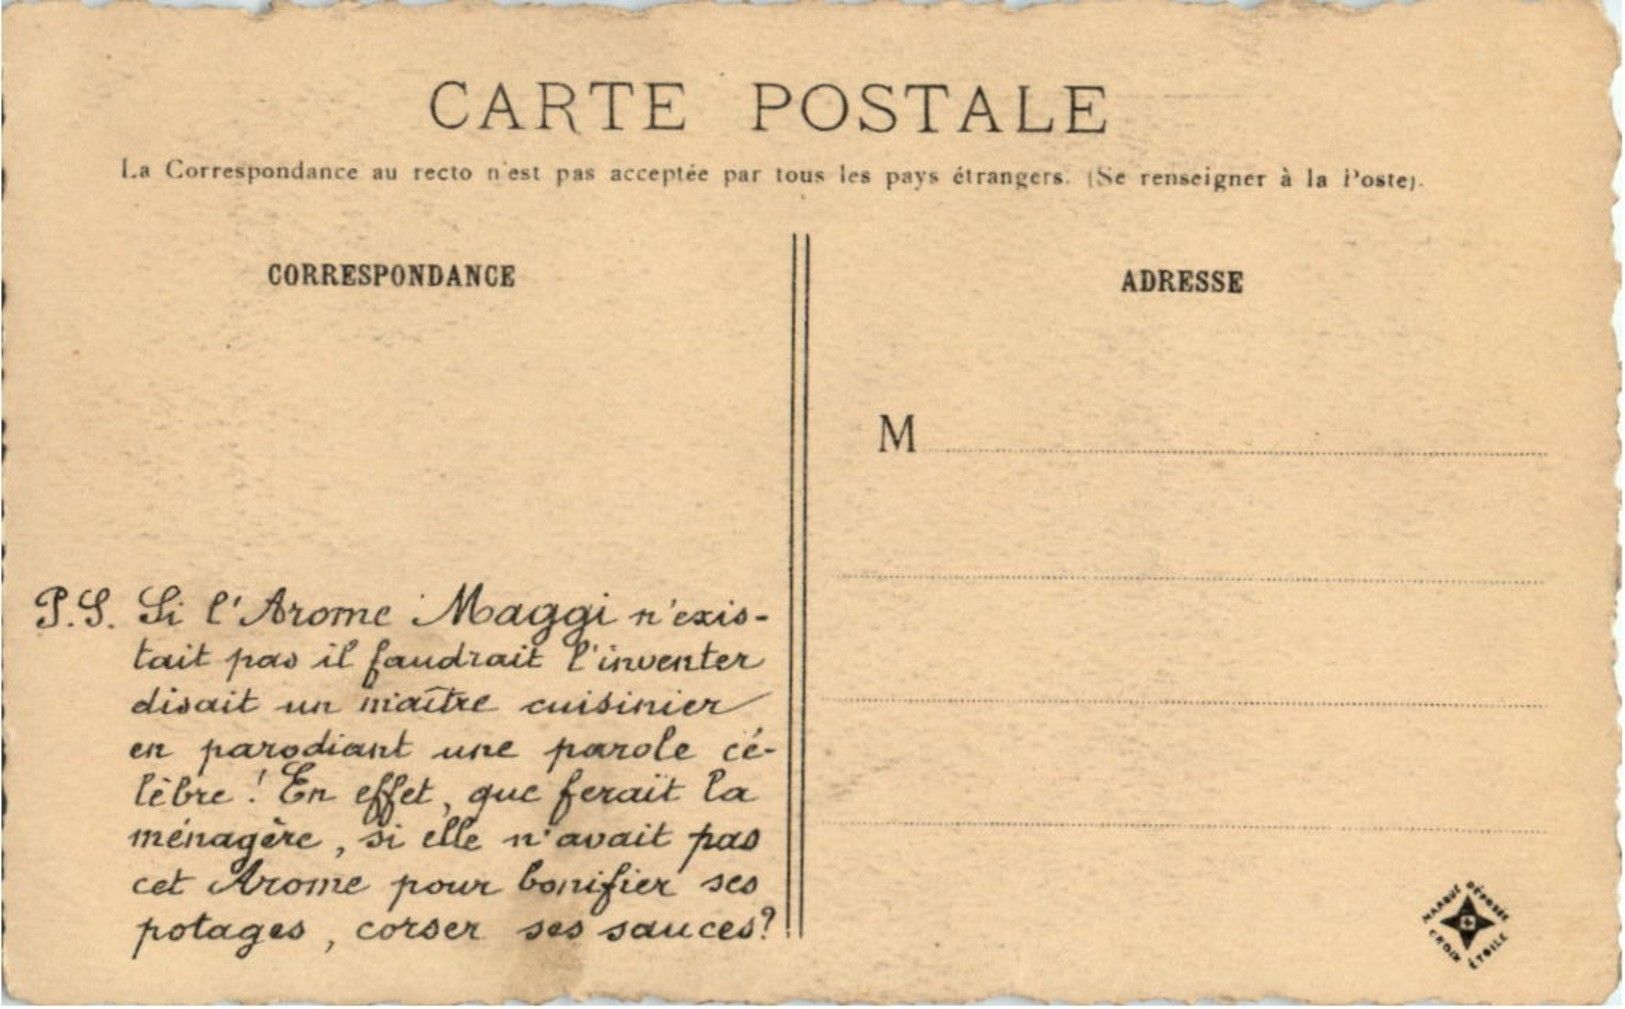 CARTE POSTALE
La Correspondance au recto n'est pas acceptée par tous les pays étrangers. (Se renseigner à la Poste).
CORRESPONDANCE
ADRESSE
M
P.S. Si l'Arome Maggi n'exis-
tait pas il faudrait l'inventer
disait un maître cuisinier
en parodiant une parole cé-
lèbre! En effet, que ferait la
ménagère, si elle n'avait pas
cet Arome pour bonifier ses
potages, corser ses sauces?
MARQUE DÉPOSÉE
CROIX ÉTOILE